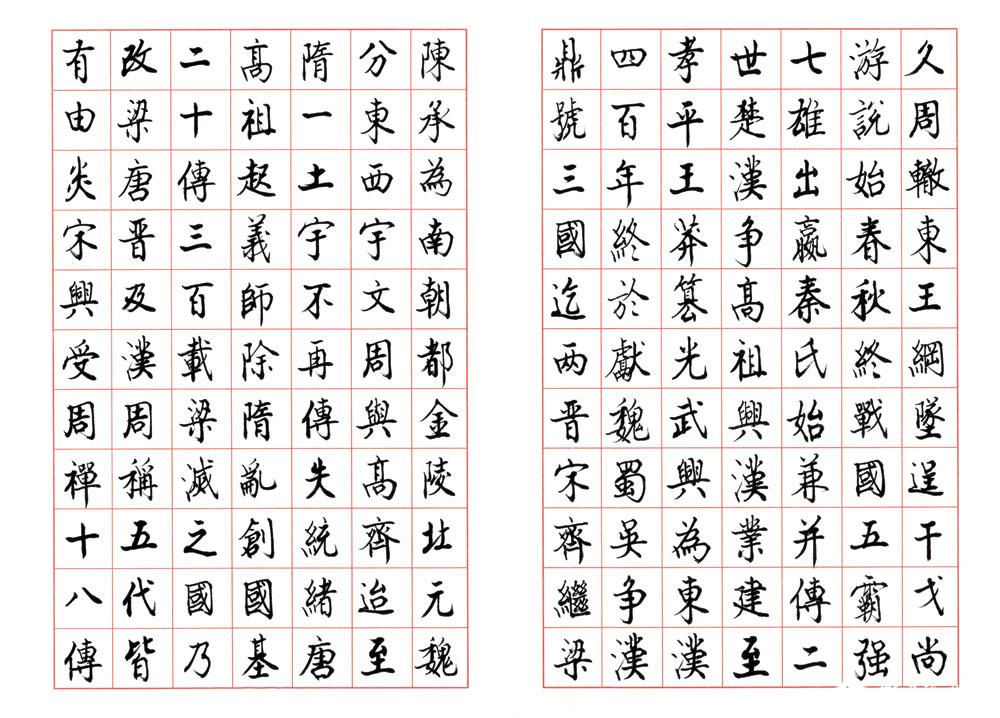 久周轍東王綱墜逞干戈尚
游說始春秋終戰國五霸强
七雄出嬴秦氏始兼并傳二
世楚漢争高祖興漢業建至
孝平王莽篡光武興為東漢
四百年終於獻魏蜀吳争漢
鼎號三國迄两晋宋齊繼梁
陳承為南朝都金陵北元魏
分東西宇文周與高齊迨至
隋一土宇不再傳失統緒唐
高祖起義師除隋亂創國基
二十傳三百載梁滅之國乃
改梁唐晋及漢周稱五代皆
有由炎宋興受周禪十八傳